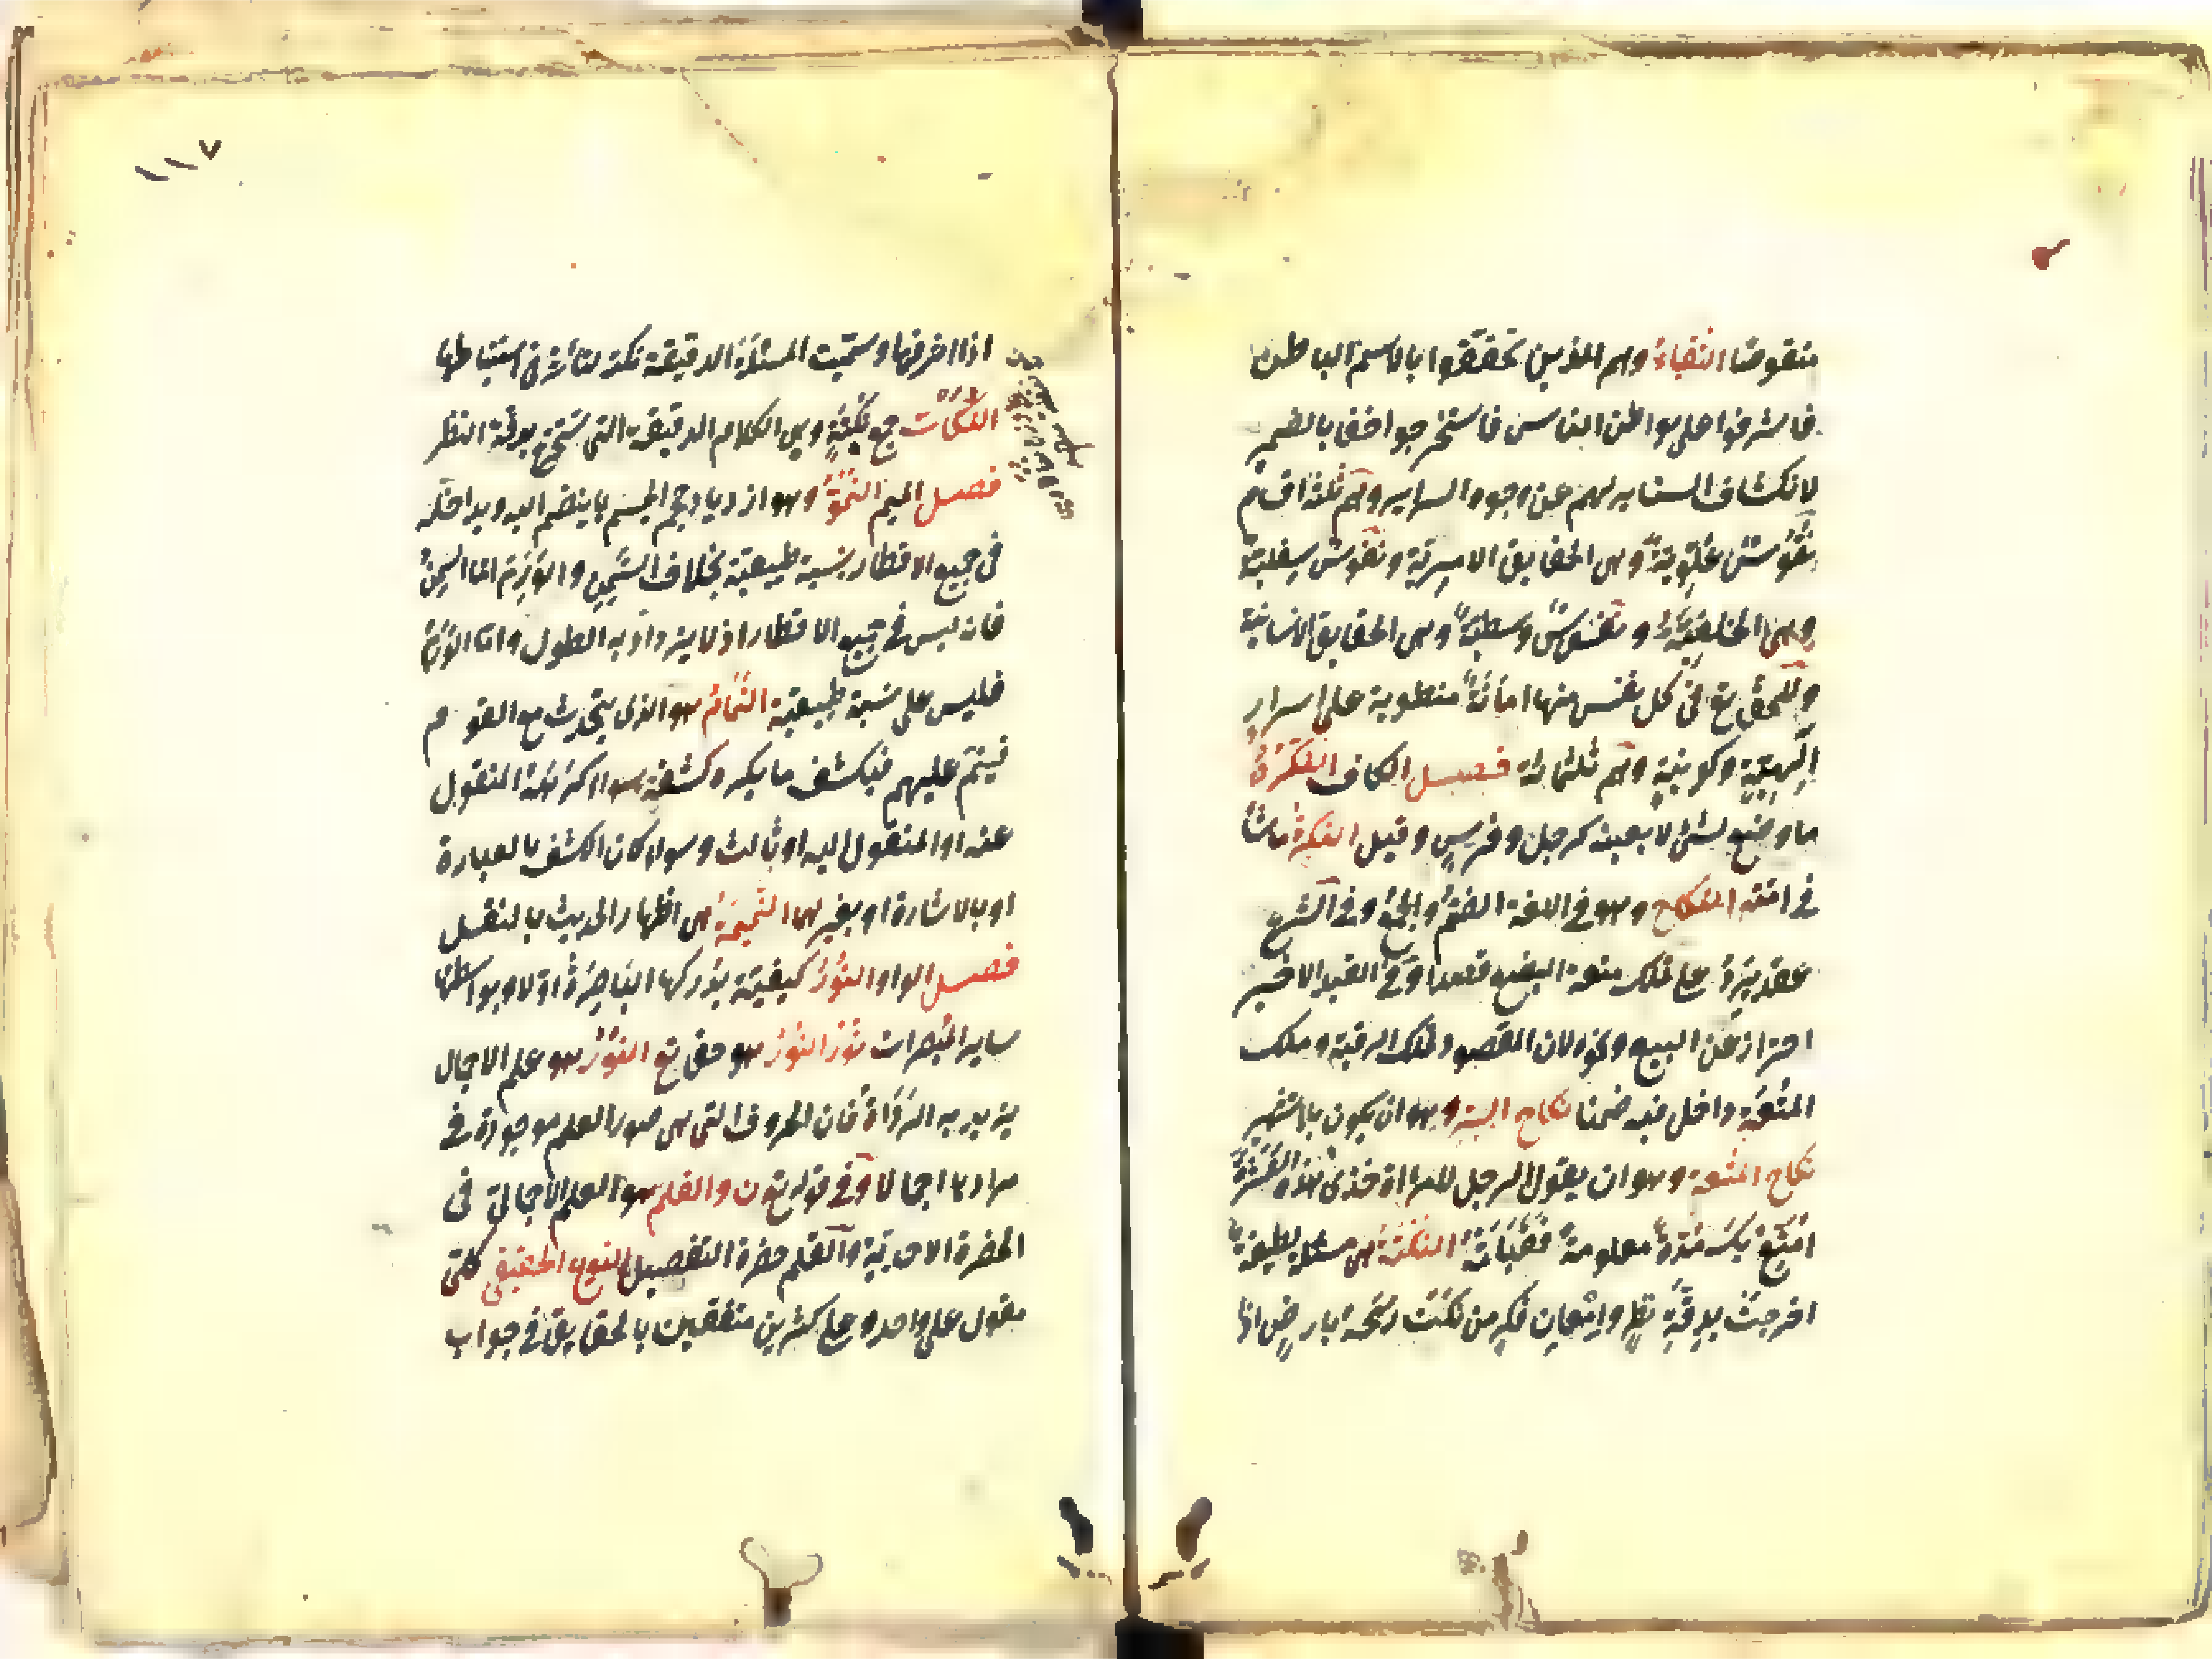 منقوضا النقباء وهم الذين تحققوا بالاسم الباطن
فاشرفوا على بواطن الناس فاستخرجوا خفايا الضمير
لانكشاف الستاير لهم عن وجوه السراير وهم ثلثة اقسام
نفوس علوية وهى الحقايق الامرية ونفوس سفلية
وهى الخلقية ونفوس وسطية وهى الحقايق الانسانية
وللحق تع فى كل نفس منها امانة منطوية على اسرار
الهية وكونية وهم ثلثمائة فصل الكاف النكرة
ما وضع لشئ لا بعينه كرجل وفرس وقيل النكرة ما شا
فى امته النكاح وهو فى اللغة الضم والجمع وفى الشرع
عقد يرد على تملك منفعة البضع قصدا وفى القيد الاخير
احتراز عن البيع ونحوه لان المقصود تملك الرقبة وملك
المتعة داخل فيه ضمنا نكاح السر وهو ان يكون بلا تشهير
نكاح المتعة وهو ان يقول الرجل للمراة خذى هذه العشرة
اتمتع بك مدة معلومة فقبلته النكتة هى مسئلة لطيفة
اخرجت بدقة نظر وامعان فكر من نكت رمحه بارض اذا
١١٧
اذا اثر فيها وسميت المسئلة الدقيقة نكتة لتأثيره فى استنباطها
النكات جمع نكتة وهى الكلام الدقيقة التى تستخرج بدقة النظر
فصل الميم النمو وهو ازدياد حجم الجسم بما ينضم اليه ويداخله
فى جميع الاقطار نسبة طبيعية بخلاف السمن والورم اما السمن
فانه ليس فى جميع الاقطار اذ لا يزداد به الطول واما الورم
فليس على نسبة طبيعية النمام هو الذى يتحدث مع القوم
فينم عليهم فيكشف ما يكره كشفه سواء كرهه المنقول
عنه او المنقول اليه او ثالث وسواء كان الكشف بالعبارة
او بالاشارة او بغيرهما النميمة هى اظهار الحديث بالنقل
فصل الواو النور كيفية يدركها الباصرة اولا وبواسطتها
ساير المبصرات نور النور هو حق تع النون هو علم الاجمال
يريد به الدواة فان الحروف التى هى صور العلم موجودة فى
مدادها اجمالا وفى قوله تع ن والقلم هو العلم الاجمالى فى
الحضرة الاحدية والقلم حضرة التفصيل النوع الحقيقى كلى
مقول على واحد وعلى كثيرين متفقين بالحقايق فى جواب